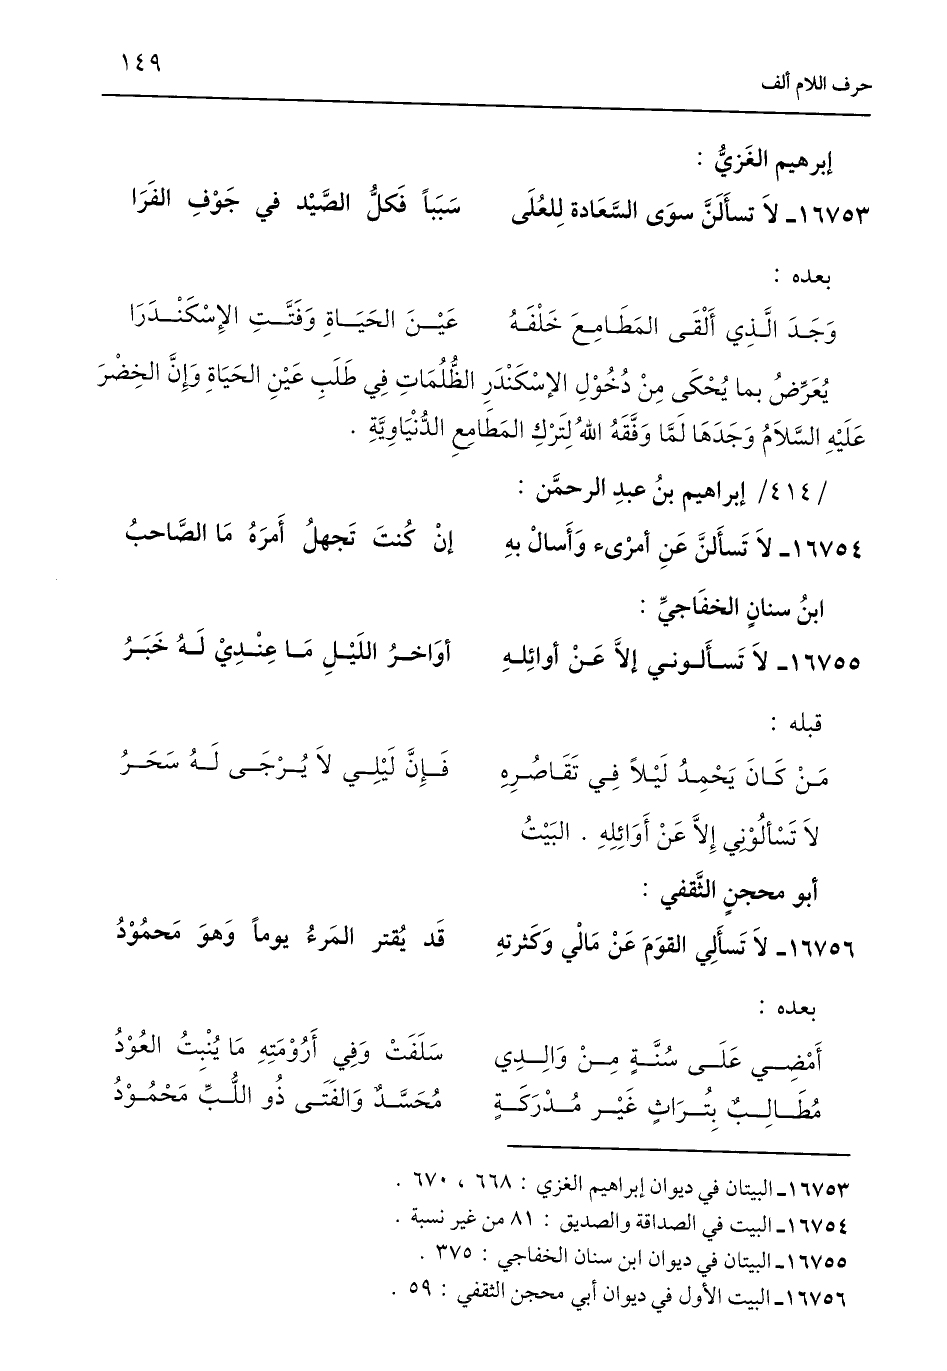 ١٤٩
حرف اللام ألف
إبرهيم الغَزيُّ :
١٦٧٥٣ـ لاَ تسأَلَنَّ سوَى السَّعَادة لِلعُلَى سَبَباً فَكلُّ الصَّيْد في جَوْفِ الفَرَا
بعده :
وَجَدَ الَّذِي أَلْقَى المَطَامِعَ خَلْفَهُ عَيْنَ الحَيَاةِ وَفَتَّتِ الإِسْكَنْدَرَا
يُعَرِّضُ بما يُحْكَى مِنْ دُخُوْلِ الإسْكَنْدَرِ الظُّلُمَاتِ فِي طَلَبِ عَيْنِ الحَيَاةِ وَإِنَّ الخِضْرَ
عَلَيْهِ السَّلاَمُ وَجَدَهَا لَمَّا وَفَّقَهُ اللهُ لِتَرْكِ المَطَامِعِ الدُّنْيَاوِيَّةِ .
/٤١٤/ إبراهيم بنُ عبدِ الرحمَّن :
١٦٧٥٤ـ لاَ تَسأَلنَّ عَنِ أمرْىء وَأَسالْ بهِ إنْ كُنتَ تَجهلُ أَمرَهُ مَا الصَّاحبُ
ابنُ سنانٍ الخفَاجيِّ :
١٦٧٥٥ـ لاَ تَسأَلوني إلاَّ عَنْ أوائِلهِ أوَاخرُ اللَيْلِ مَا عِنْدِيْ لَهُ خَبَرُ
قبله :
مَنْ كَانَ يَحْمِدُ لَيْلاً فِي تَقَاصُرِهِ فَإِنَّ لَيْلِي لاَ يُرْجَى لَهُ سَحَرُ
لاَ تَسْألُوْنِي إِلاَّ عَنْ أَوَائِلِهِ . البَيْتُ
أبو محجنٍ الثَّقفي :
١٦٧٥٦ـ لاَ تَسأَلِي القومَ عَنْ مَالْي وَكَثرتهِ قَد يُقتر المَرءُ يوماً وَهوَ مَحمُوْدُ
بعده :
أَمْضِي عَلَى سُنَّةٍ مِنْ وَالِدِي سَلَفَتْ وَفِي أَرُوْمَتِهِ مَا يُنْبِتُ العُوْدُ
مُطَالِبٌ بِتُرَاثٍ غَيْرِ مُدْرَكَةٍ مُحَسَّدٌ وَالفَتَى ذُو اللُّبِّ مَحْمُوْدُ
١٦٧٥٣ـ البيتان في ديوان إبراهيم الغزي : ٦٦٨ ، ٦٧٠ .
١٦٧٥٤ـ البيت في الصداقة والصديق : ٨١ من غير نسبة .
١٦٧٥٥ـ البيتان في ديوان ابن سنان الخفاجي : ٣٧٥ .
١٦٧٥٦ـ البيت الأول في ديوان أبي محجن الثقفي : ٥٩ .